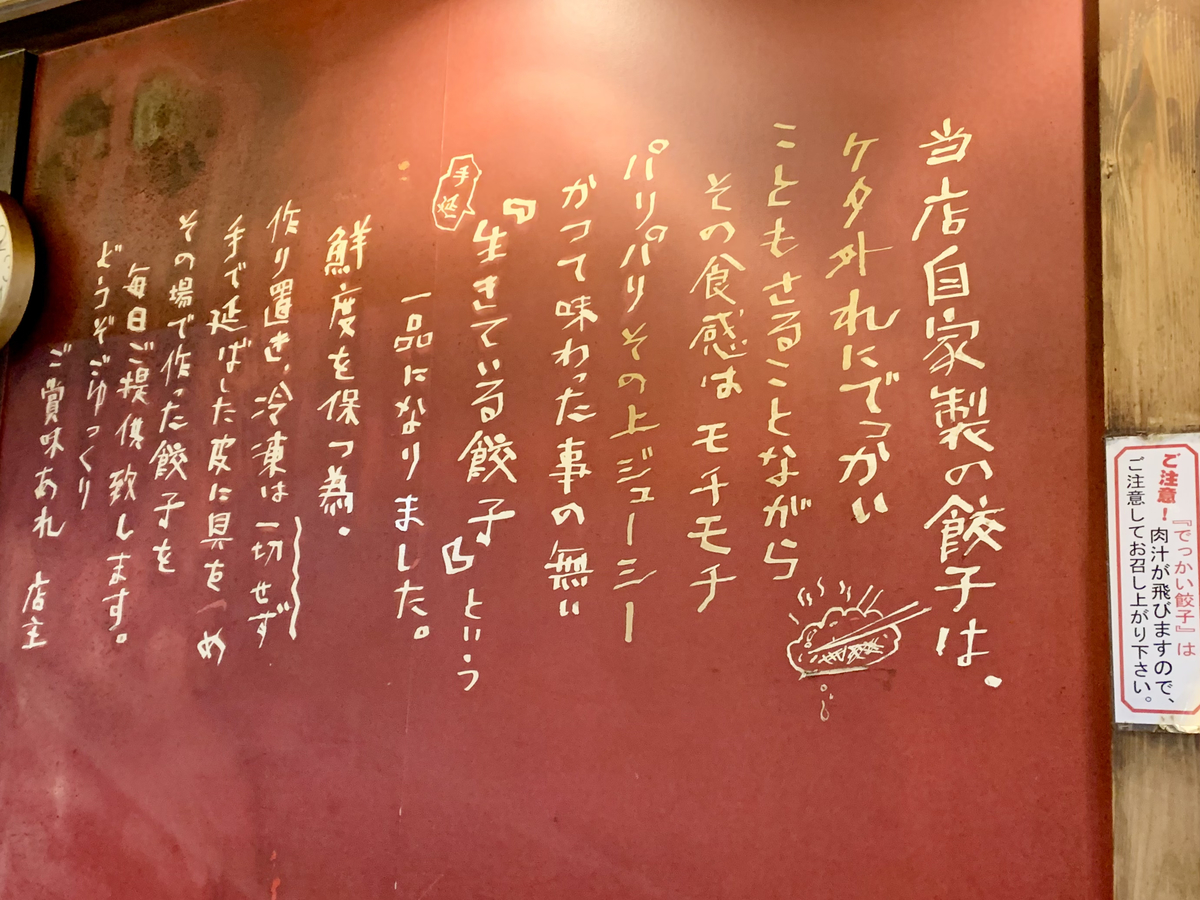 当店自家製の餃子は、
ケタ外れにでっかい
こともさることながら
その食感はモチモチ
パリパリその上ジューシー
かつて味わった事の無い
手延
『生きている餃子』という
一品になりました。
鮮度を保つ為、
作り置き、冷凍は一切せず
手で延ばした皮に具をつめ
その場で作った餃子を
毎日ご提供致します。
どうぞごゆっくり
ご賞味あれ 店主
ご注意!『でっかい餃子』は
肉汁が飛びますので、
ご注意してお召し上がり下さい。